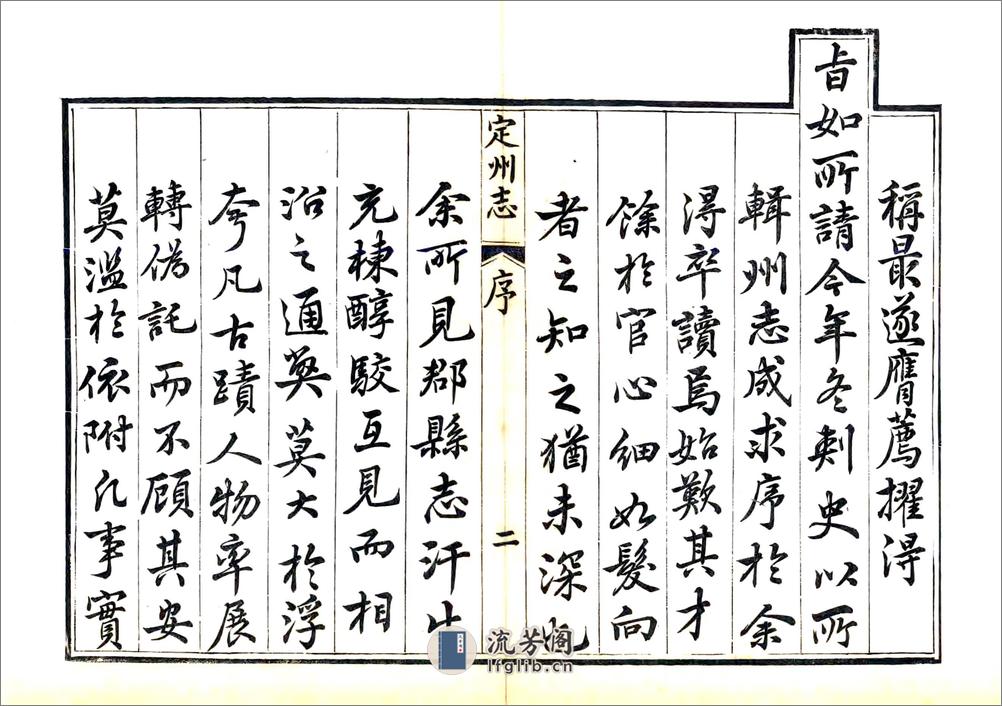 稱最遂膺薦擢得
旨如所請今年冬刺史以所
輯州志成求序於余
得卒讀焉始歎其才
餘於官心細如髮向
者之知之猶未深也
定州志 序 二
余所見郡縣志汗牛
充棟醇駮互見而相
沿之通弊莫大於浮
夸凡古蹟人物率展
轉偽託而不顧其安
莫濫於依附凡事實
流芳阁
lfglib.cn